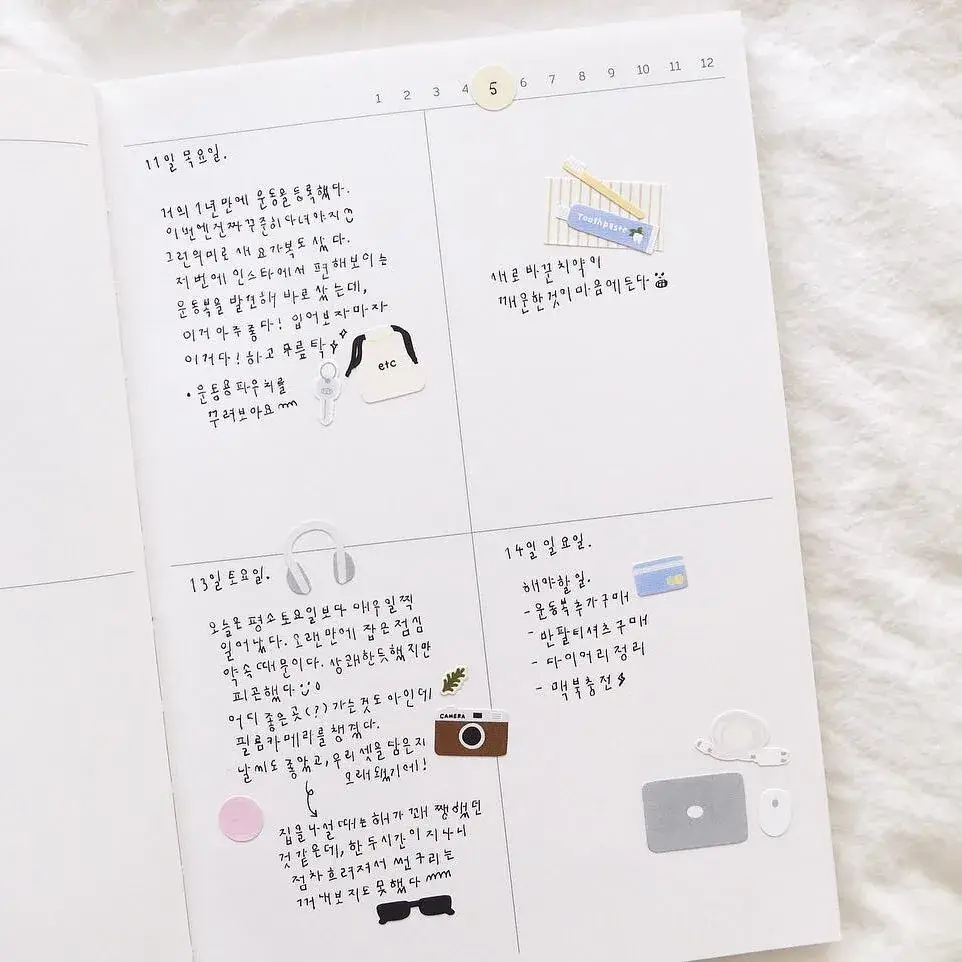 1 2 3 4 5 6 7 8 9 10 11 12
11일 목요일.
거의 1년만에 운동을등록했다.
이번엔진짜꾸준히다녀야지
그런의미로 새 요가복도 샀다.
저번에 인스타에서 편해보이는
운동복을 발견해 바로샀는데,
이거 아주좋다! 입어보자마자
이거다!하고 무릎탁
etc
• 운동용파우치를
꾸려보아요
Toothpaste
새로바꾼치약이
깨운한것이마음에든다
13일 토요일.
오늘은 평소토요일보다 매우일찍
일어났다. 오랜만에 잡은점심
약속때문이다. 상쾌한듯했지만
피곤했다
어디 좋은곳(?)가는것도 아인데
필름카메라를챙겼다.
날씨도 좋았고, 우리셋을담은지
오래됐기에!
CAMERA
집을나설때는해가꽤쨍했던
것같은데, 한두시간이지나니
점차흐려져서 썬구리는
꺼내보지도못했다
14일 일요일.
해야할일.
- 운동복추가구매
- 반팔티셔츠구매
- 다이어리정리
- 맥북충전